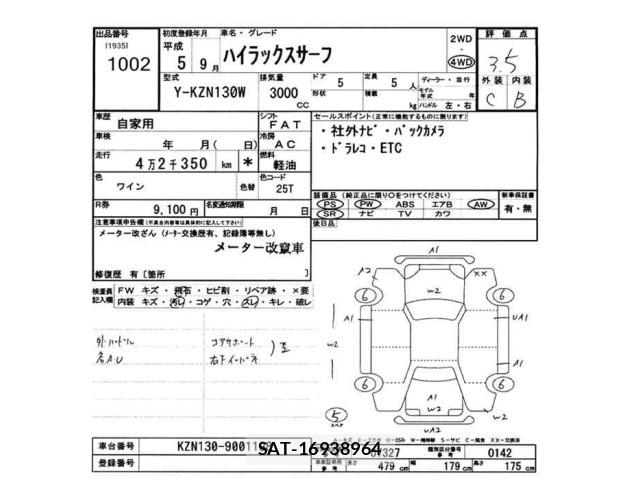 出品番号 初度登録年月 車名・グレード 2WD 評価点
[1935] 平成 ハイラックスサーフ ・
1002 5 9月 4WD 3.5
型式 排気量 ドア 5 定員 5人 ディーラー・並行 外装 内装
Y-KZN130W 3000 CC 形状 積載 kg モデル年式 年 C B
ハンドル 左・右
車歴 自家用 シフト FAT セールスポイント(正常に機能するものに限ります)
車検 年 月( 日) 冷房 AC ・社外ナビ・バックカメラ
走行 4万2千350 km * 燃料 軽油 ・ドラレコ・ETC
色 ワイン 色替 色コード 25T
R券 9,100円 名変通知期限 月 日
装備品(純正品に限り○をつけてください) 新車保証書
PS PW ABS エアB AW 有・無
SR ナビ TV カワ
後日品
注意事項申告欄
メーター改ざん(メーター交換歴有、記録簿等無し)
メーター改竄車
修復歴 有〔箇所 〕
検査員記入欄 FW キズ・飛石・ヒビ割・リペア跡・×要
内装 キズ・汚レ・コゲ・穴・スレ・キレ・破レ
A1
A2 W2 XX
6 6
A1 UA1
W2
A1
6 6
A1
W2 W2
5
スペア UA2
車台番号 KZN130-9001
SAT-16938964
0142
登録番号 長さ 479 cm 幅 179 cm 高さ 175 cm